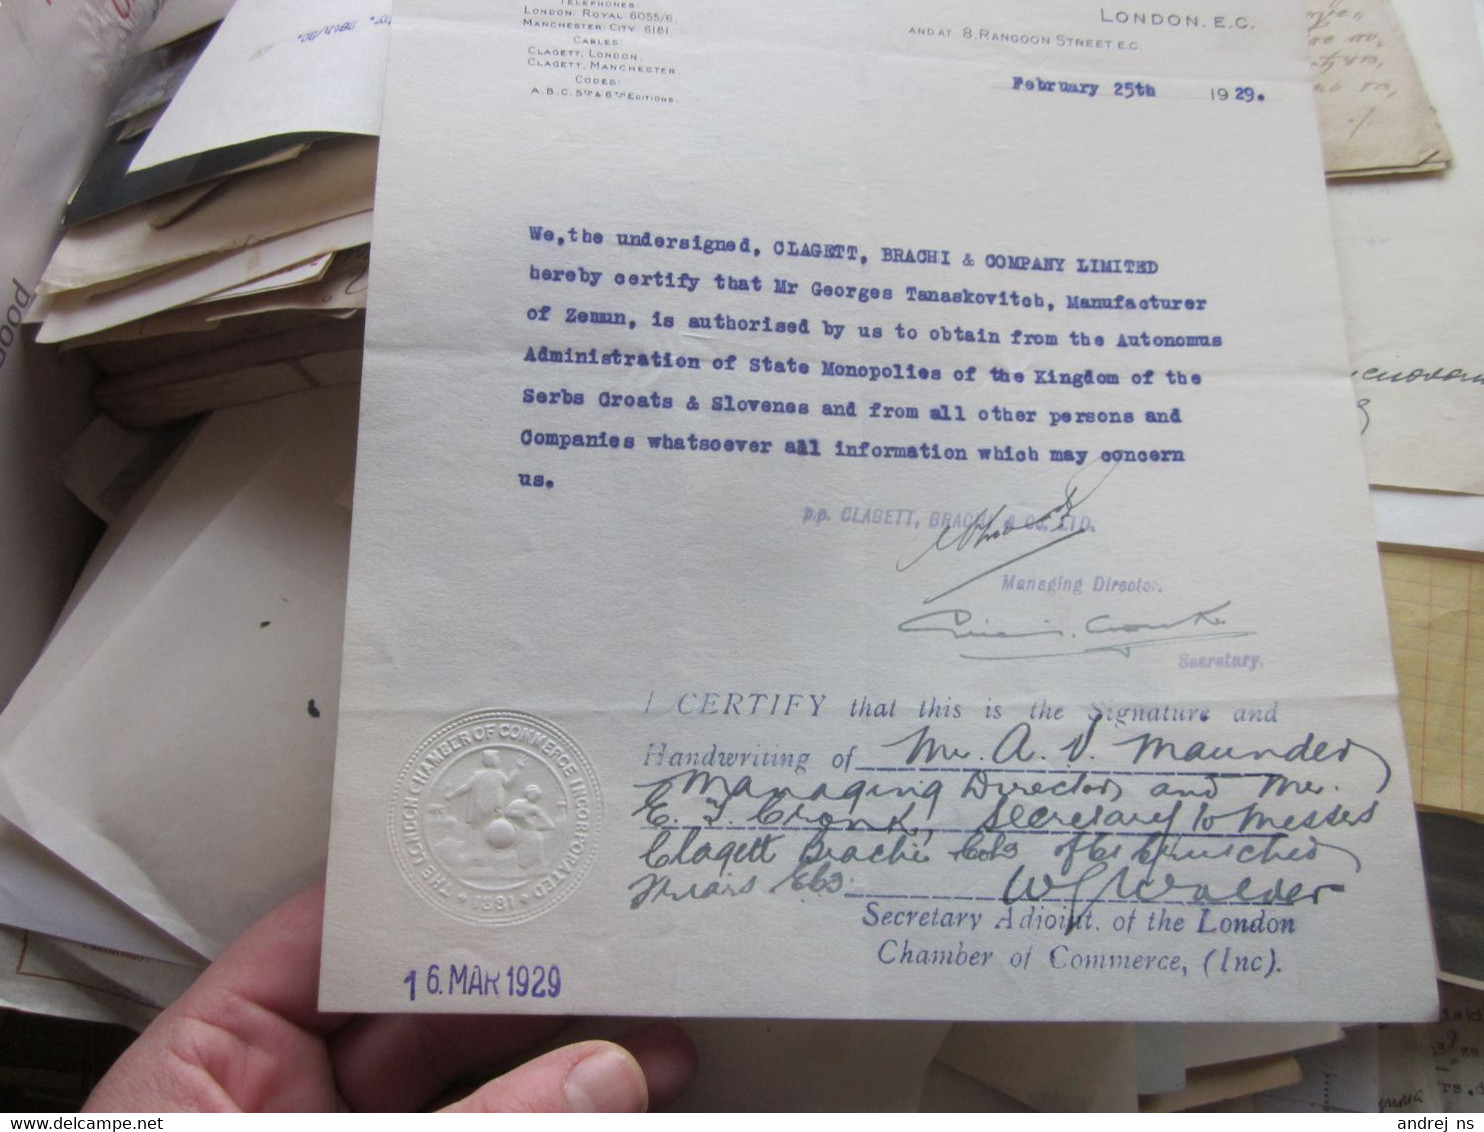 TELEPHONES:
LONDON: ROYAL 6055/6.
MANCHESTER: CITY 6181
CABLES:
CLAGETT, LONDON.
CLAGETT, MANCHESTER.
CODES:
A.B.C. 5TH & 6TH EDITIONS.
LONDON. E.C.
AND AT 8, RANGOON STREET. E.C.
February 25th 1929.
We, the undersigned, CLAGETT, BRACHI & COMPANY LIMITED
hereby certify that Mr Georges Tanaskovitch, Manufacturer
of Zemun, is authorised by us to obtain from the Autonomus
Administration of State Monopolies of the Kingdom of the
Serbs Croats & Slovenes and from all other persons and
Companies whatsoever all information which may concern
us.
p.p. CLAGETT, BRACHI & CO. LTD.
Managing Director.
Secretary.
I CERTIFY that this is the Signature and
Handwriting of Mr. A. V. Maunder
Managing Director and Mr.
E. J. Cronk, Secretary to Messrs
Clagett Brachi & Co Ld of 61 Crutched
Friars EC3.
W J Walder
Secretary Adjoint. of the London
Chamber of Commerce, (Inc).
THE LONDON CHAMBER OF COMMERCE INCORPORATED
1881
16. MAR 1929
andrej ns